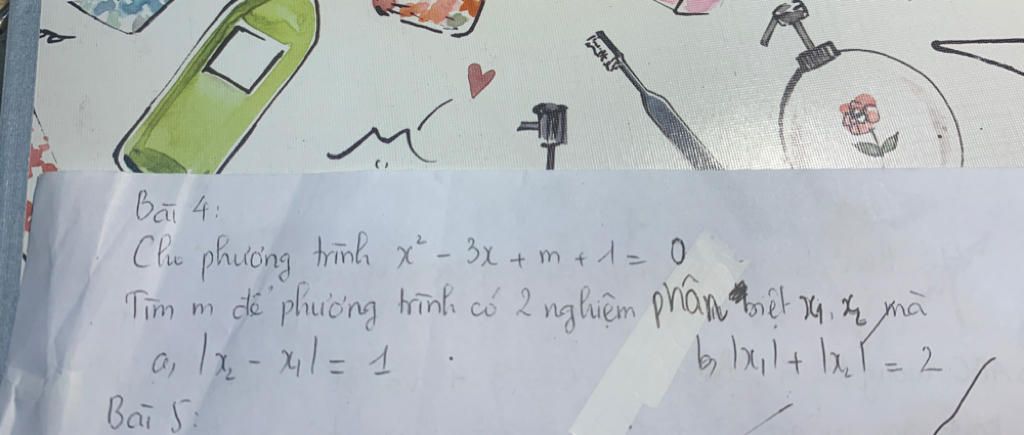 Bài 4:
Cho phương trình x² - 3x + m + 1 = 0
Tìm m để phương trình có 2 nghiệm phân biệt x₁, x₂ mà
a, |x₂ - x₁| = 1 b, |x₁| + |x₂| = 2
Bài 5: